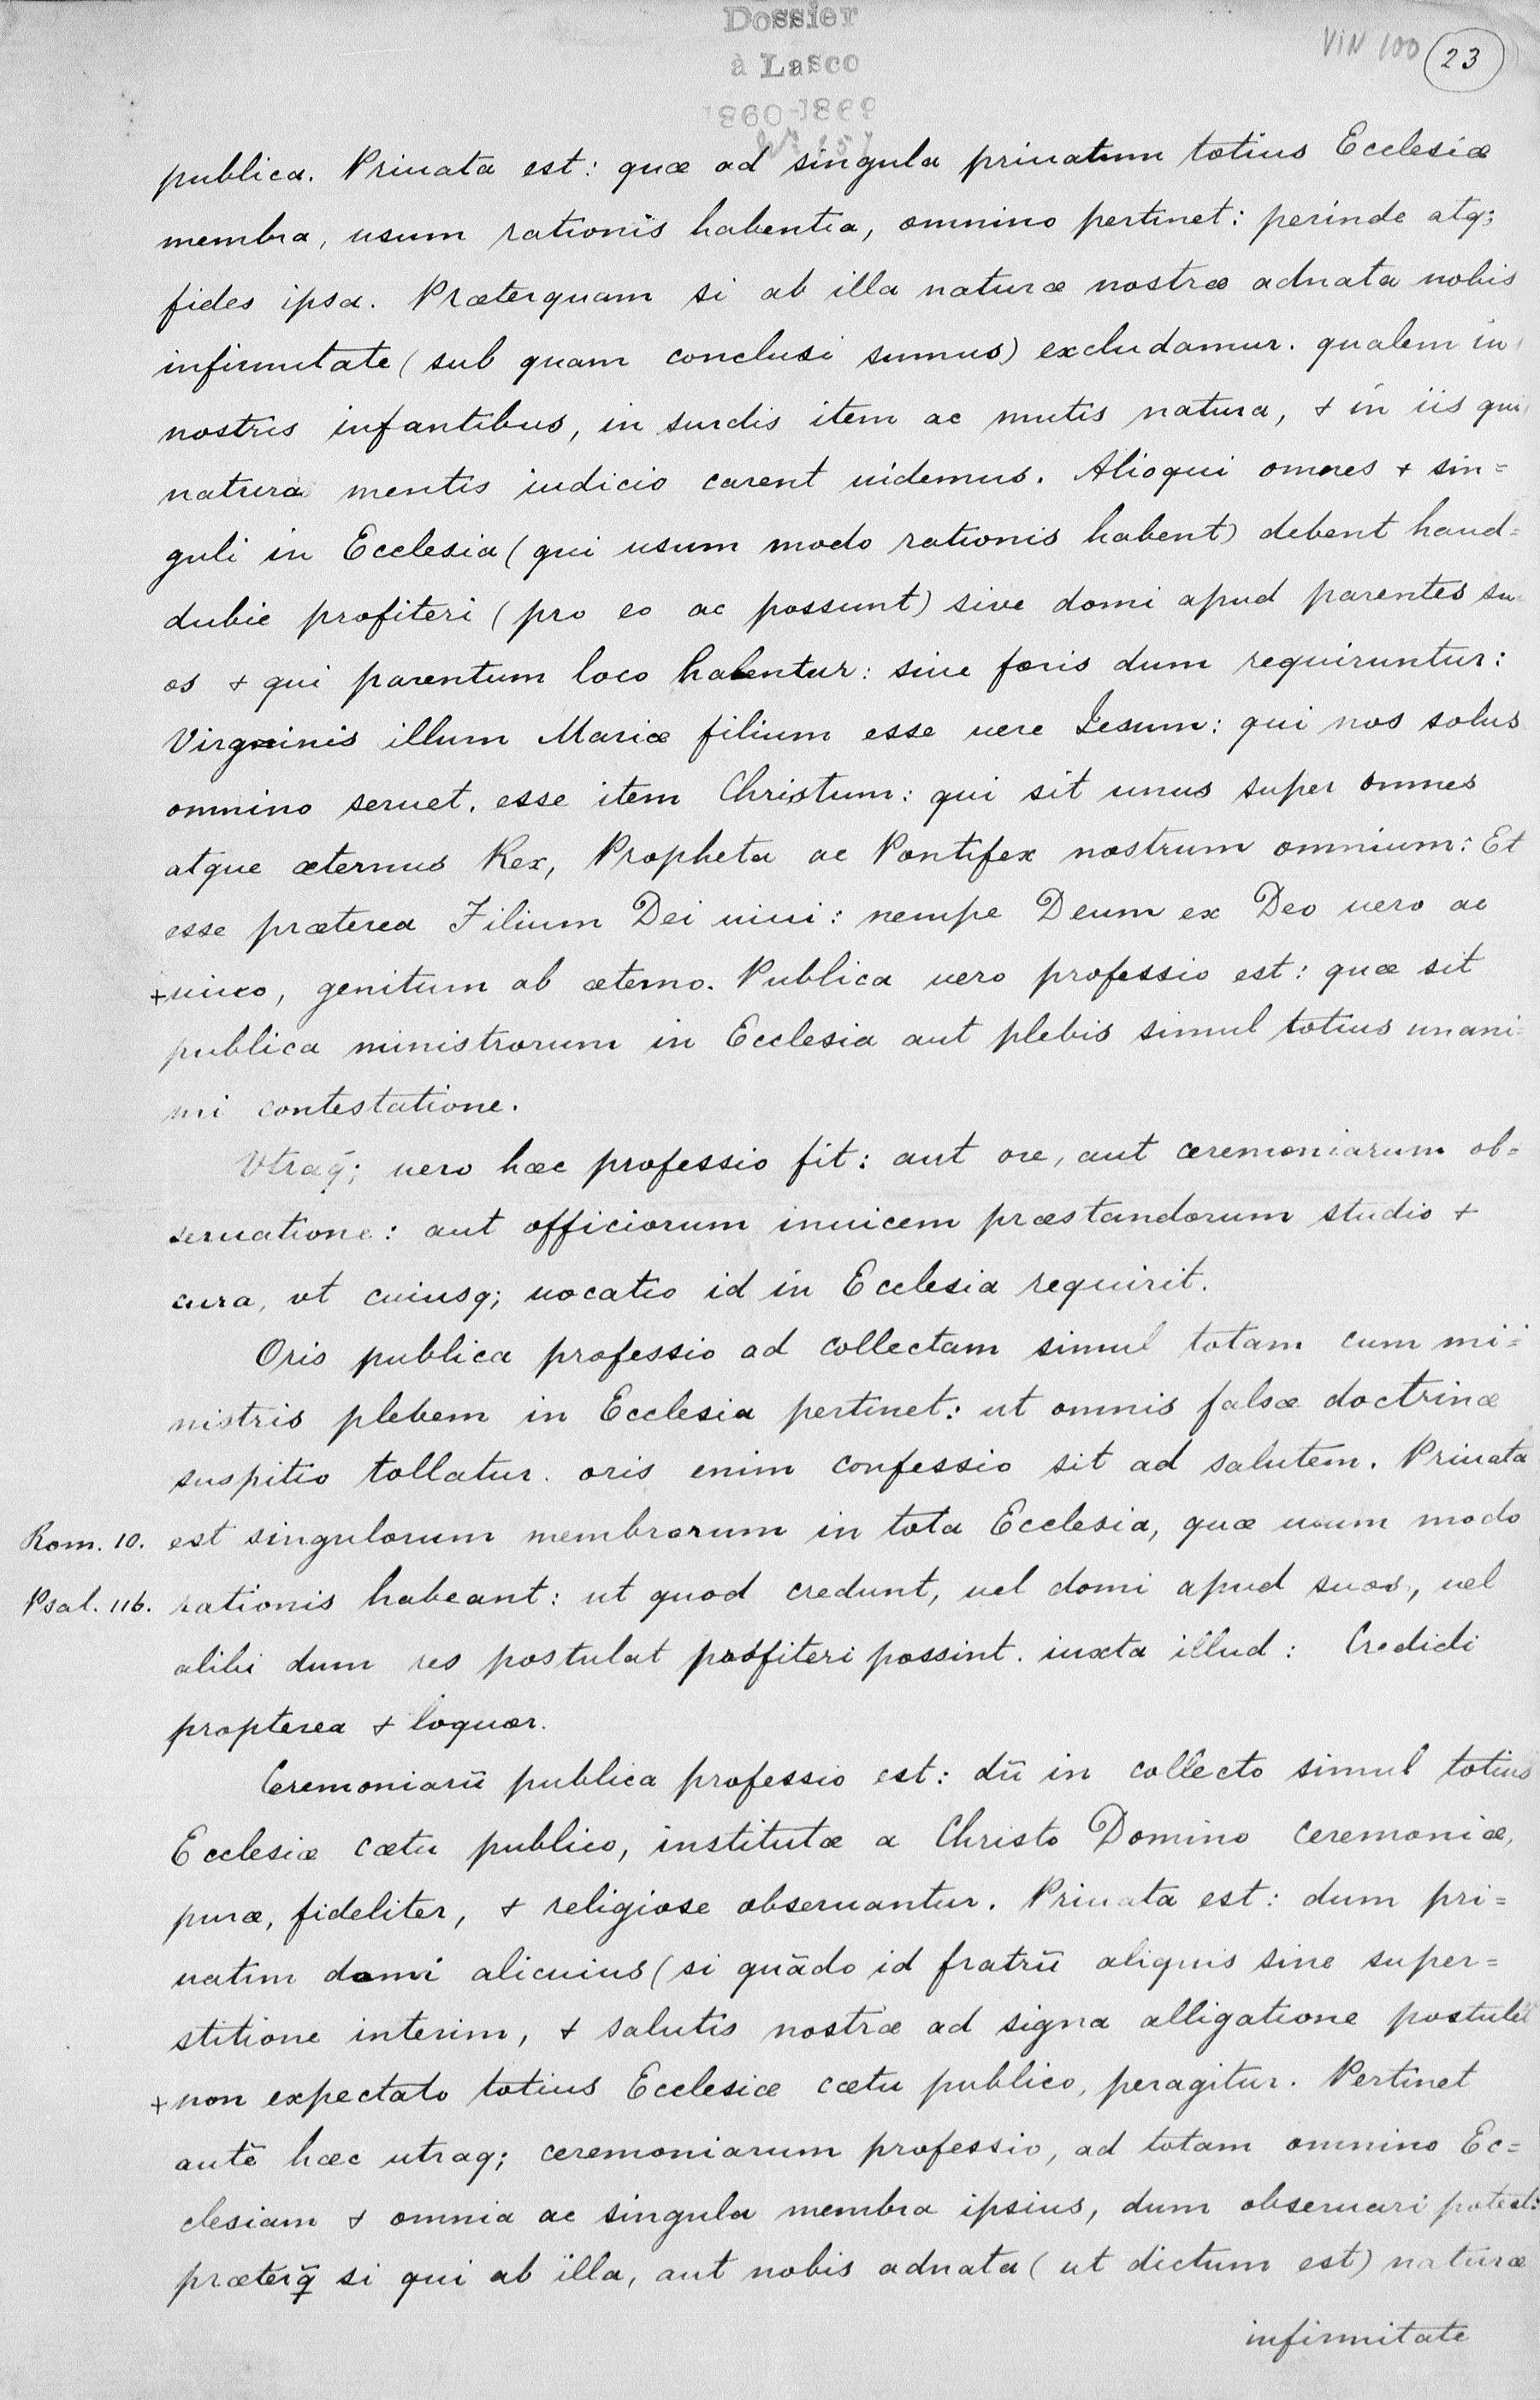 Dossier
à Lasco
1860-1869
VIN 100 23
publica. Priuata est: quæ ad singula priuatum totius Ecclesiæ
membra, usum rationis habentia, omnino pertinet: perinde atq;
fides ipsa. Præterquam si ab illa naturæ nostræ adnata nobis
infirmitate (sub quam conclusi sumus) excludamur. qualem in
nostris infantibus, in surdis item ac mutis natura, & in iis qui
natura mentis iudicio carent uidemus. Alioqui omnes & sin=
guli in Ecclesia (qui usum modo rationis habent) debent haud=
dubie profiteri (pro eo ac possunt) sive domi apud parentes su=
os & qui parentum loco habentur: siue foris dum requiruntur:
Virginis illum Mariæ filium esse uere Iesum: qui nos solus
omnino seruet. esse item Christum: qui sit unus super omnes
atque æternus Rex, Propheta ac Pontifex nostrum omnium: Et
esse præterea Filium Dei uiui: nempe Deum ex Deo uero ac
+ uiuo, genitum ab æterno. Publica uero professio est: quæ sit
publica ministrorum in Ecclesia aut plebis simul totius unani=
mi contestatione.
Vtraq̃; uero hæc professio fit: aut ore, aut ceremoniarum ob=
seruatione: aut officiorum inuicem præstandorum studio &
cura, vt cuiusq; uocatio id in Ecclesia requirit.
Oris publica professio ad collectam simul totam cum mi=
nistris plebem in Ecclesia pertinet: ut omnis falsæ doctrinæ
suspitio tollatur. oris enim confessio sit ad salutem. Priuata
Rom. 10. est singulorum membrorum in tota Ecclesia, quæ usum modo
Psal. 116. rationis habeant: ut quod credunt, uel domi apud suos, uel
alibi dum res postulat profiteri possint. iuxta illud: Credidi
propterea & loquor.
Ceremoniarū publica professio est: dū in collecto simul totius
Ecclesiæ cœtu publico, institutæ a Christo Domino ceremoniæ,
puræ, fideliter, & religiose obseruantur. Priuata est: dum pri=
uatim domi alicuius (si quādo id fratrū aliquis sine super=
stitione interim, & salutis nostræ ad signa alligatione postulet
+ non expectato totius Ecclesiæ cœtu publico, peragitur. Pertinet
autē hæc utraq; ceremoniarum professio, ad totam omnino Ec=
clesiam & omnia ac singula membra ipsius, dum obseruari potest:
præterq̃ si qui ab illa, aut nobis adnata (ut dictum est) naturæ
infirmitate